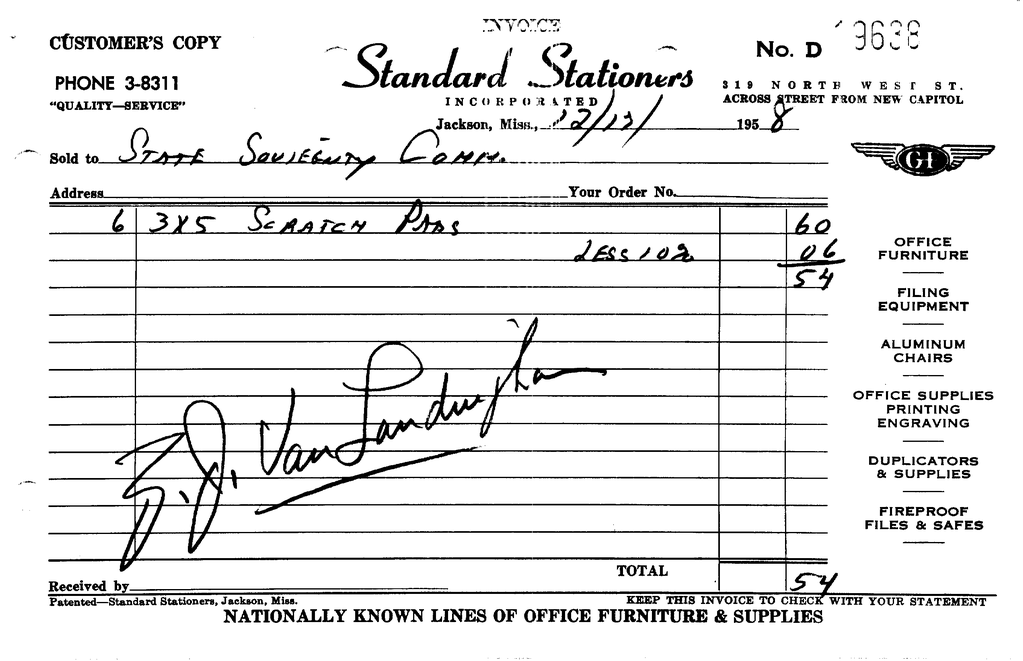 INVOICE
CUSTOMER'S COPY
No. D 19638
PHONE 3-8311
Standard Stationers
319 NORTH WEST ST.
"QUALITY—SERVICE"
INCORPORATED
ACROSS STREET FROM NEW CAPITOL
Jackson, Miss., 12/12/ 1958
Sold to STATE SOVIEGNTY COMM.
GF
Address Your Order No.
6 3X5 SCRATCH PADS 60
LESS 10% 06
54
OFFICE
FURNITURE
FILING
EQUIPMENT
ALUMINUM
CHAIRS
OFFICE SUPPLIES
PRINTING
ENGRAVING
DUPLICATORS
& SUPPLIES
FIREPROOF
FILES & SAFES
Z.J. Van Landingham
TOTAL 54
Received by
Patented—Standard Stationers, Jackson, Miss.
KEEP THIS INVOICE TO CHECK WITH YOUR STATEMENT
NATIONALLY KNOWN LINES OF OFFICE FURNITURE & SUPPLIES